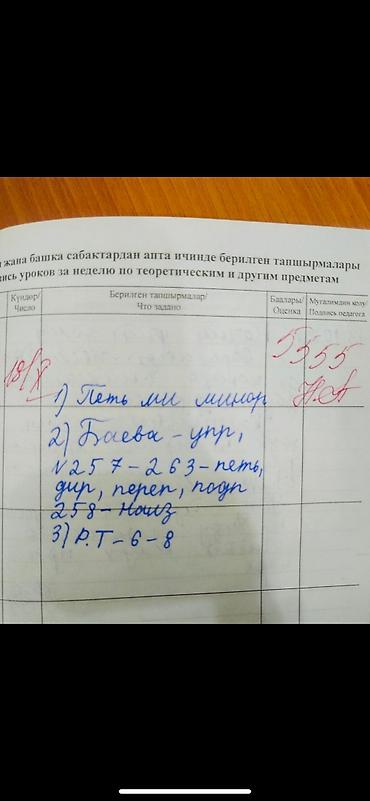 жана башка сабактардан апта ичинде берилген тапшырмалары
ись уроков за неделю по теоретическим и другим предметам
Күндөр/
Число
Берилген тапшырмалар/
Что задано
Баалары/
Оценка
Мугалимдин колу/
Подпись педагога
18/X
5 5 5 5
1) Петь ми минор
Н.А
2) Баева - упр,
№257-263-петь,
дир, переп, подп
258-наиз
3) Р.Т-6-8